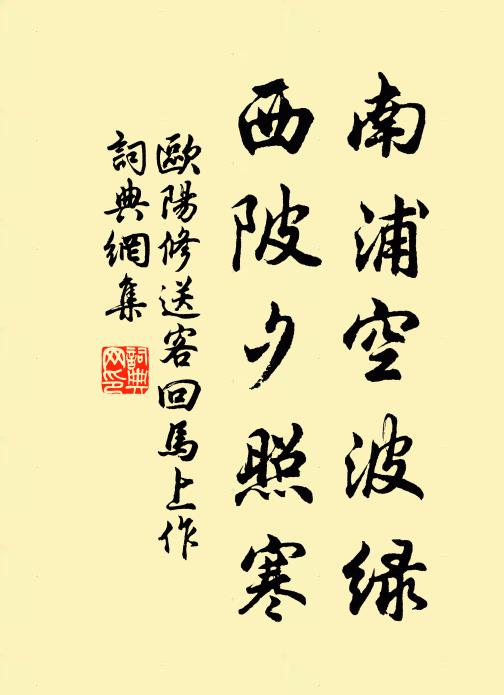 南浦空波绿
西陂夕照寒
歐陽修送客回馬上作
詞典網集
詞典
网印